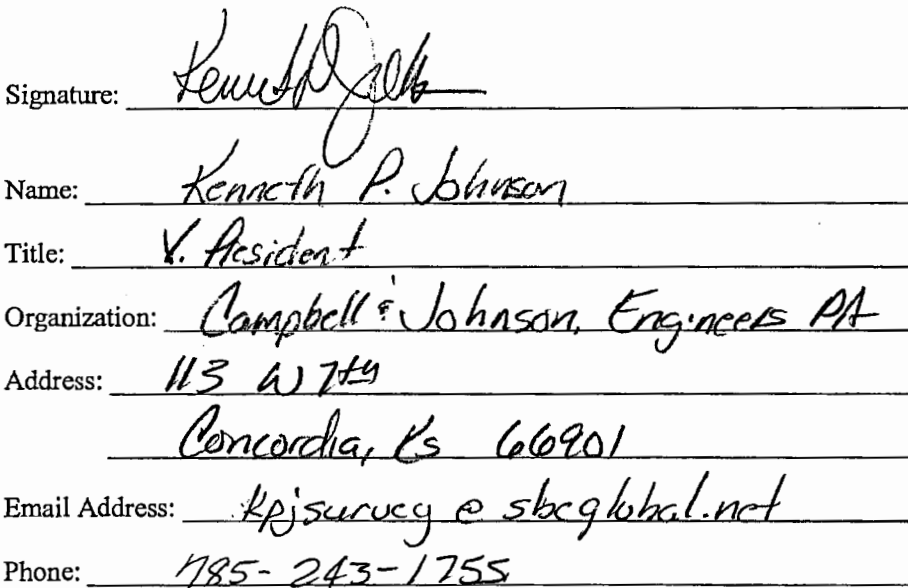 Signature:
Name: Kenneth P. Johnson
Title: V. President
Organization: Campbell & Johnson, Engineers PA
Address: 113 W 7th
Concordia, Ks 66901
Email Address: kpjsurvey @ sbcglobal.net
Phone: 785-243-1755